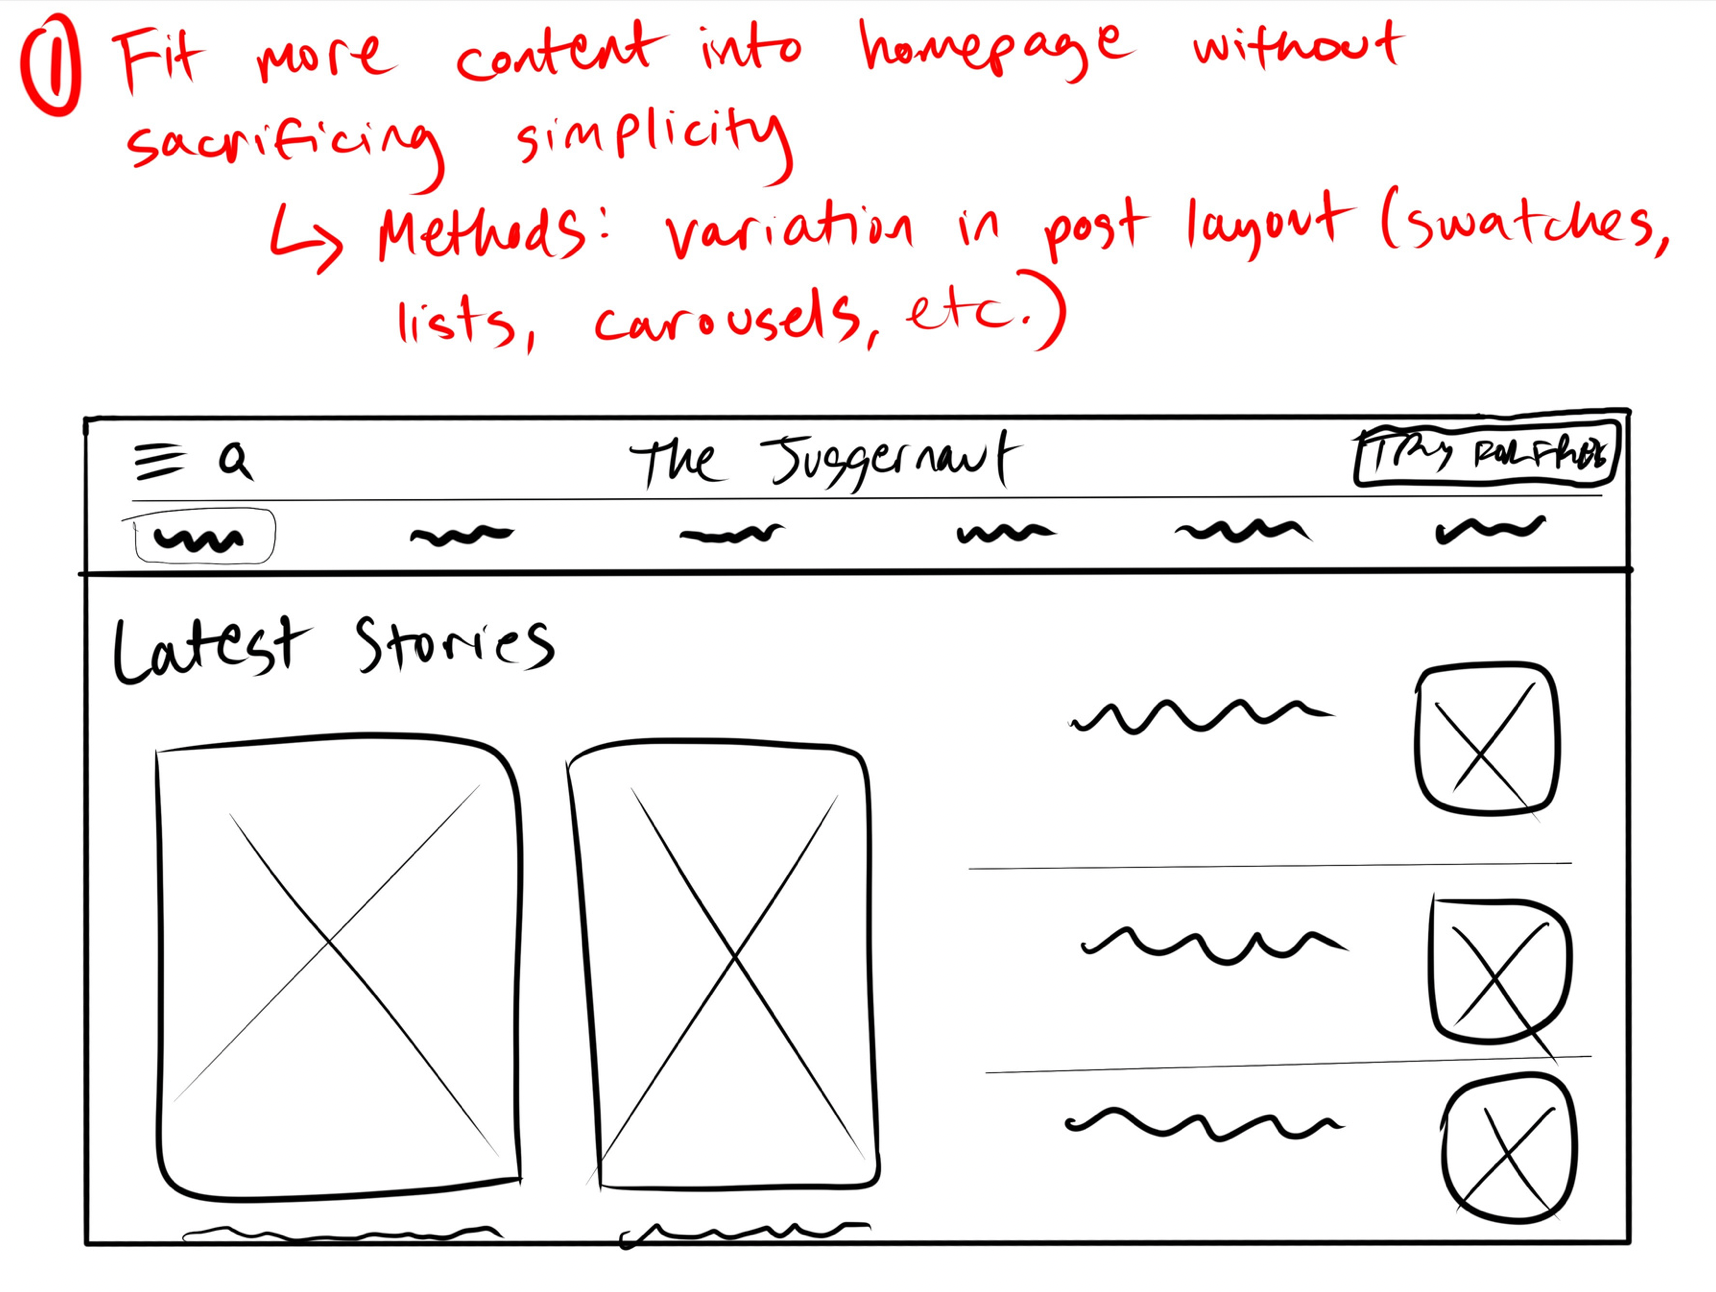 ① Fit more content into homepage without
sacrificing simplicity
↳ Methods: variation in post layout (swatches,
lists, carousels, etc.)
The Juggernaut
TRY FOR FREE
Latest Stories